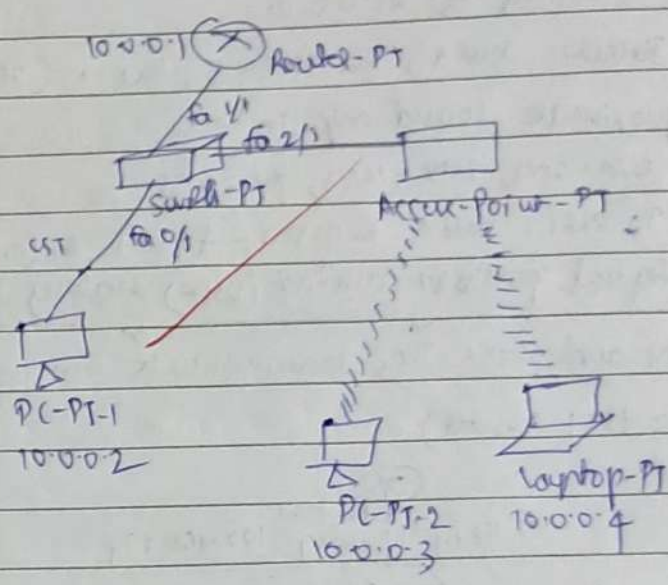 10.0.0.1
Router-PT
fa 1/1
fa 2/1
Switch-PT
Access-Point-PT
CST
fa 0/1
PC-PT-1
10.0.0.2
PC-PT-2
10.0.0.3
Laptop-PT
10.0.0.4